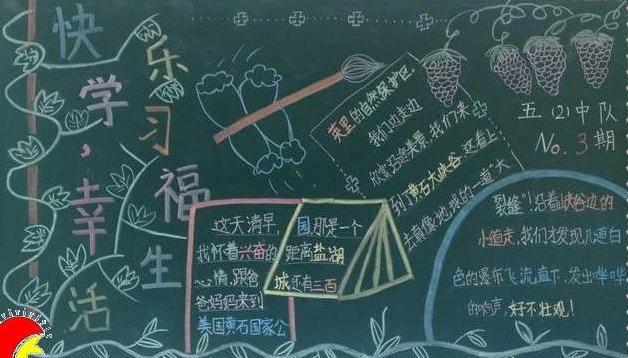 快乐
学习，
幸福
生活
五(2)中队
No.3期
这天清早，
我怀着兴奋的
心情，跟爸
爸妈妈来到
美国黄石国家公
园，那是一个
距离盐湖
城还有三百
英里的自然保护区。
我们边走边
欣赏沿途美景，我们来
到黄石大峡谷，这看上
去真像"地球的一道"大
裂缝"！沿着峡谷边的
小道走，我们才发现几道白
色的瀑布飞流直下，发出哗哗
的响声，好不壮观！